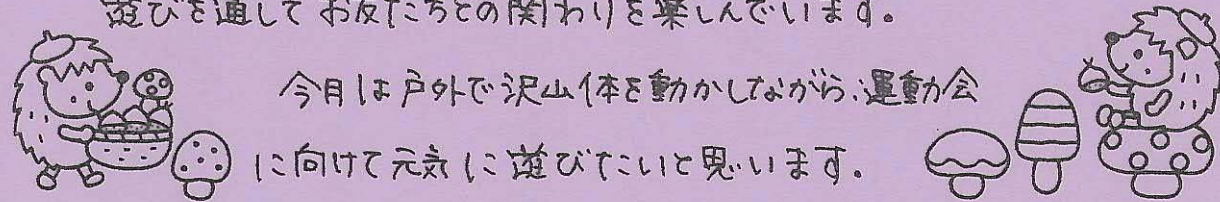 遊びを通して お友だちとの関わりを楽しんでいます。
今月は戸外で沢山体を動かしながら、運動会
に向けて元気に遊びたいと思います。